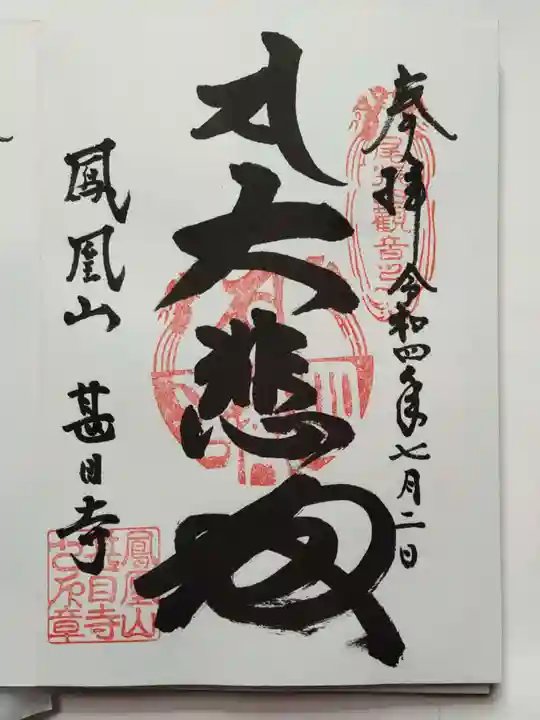 奉拝 令和四年七月二日
大悲殿
鳳凰山 甚目寺
鳳凰山
甚目寺